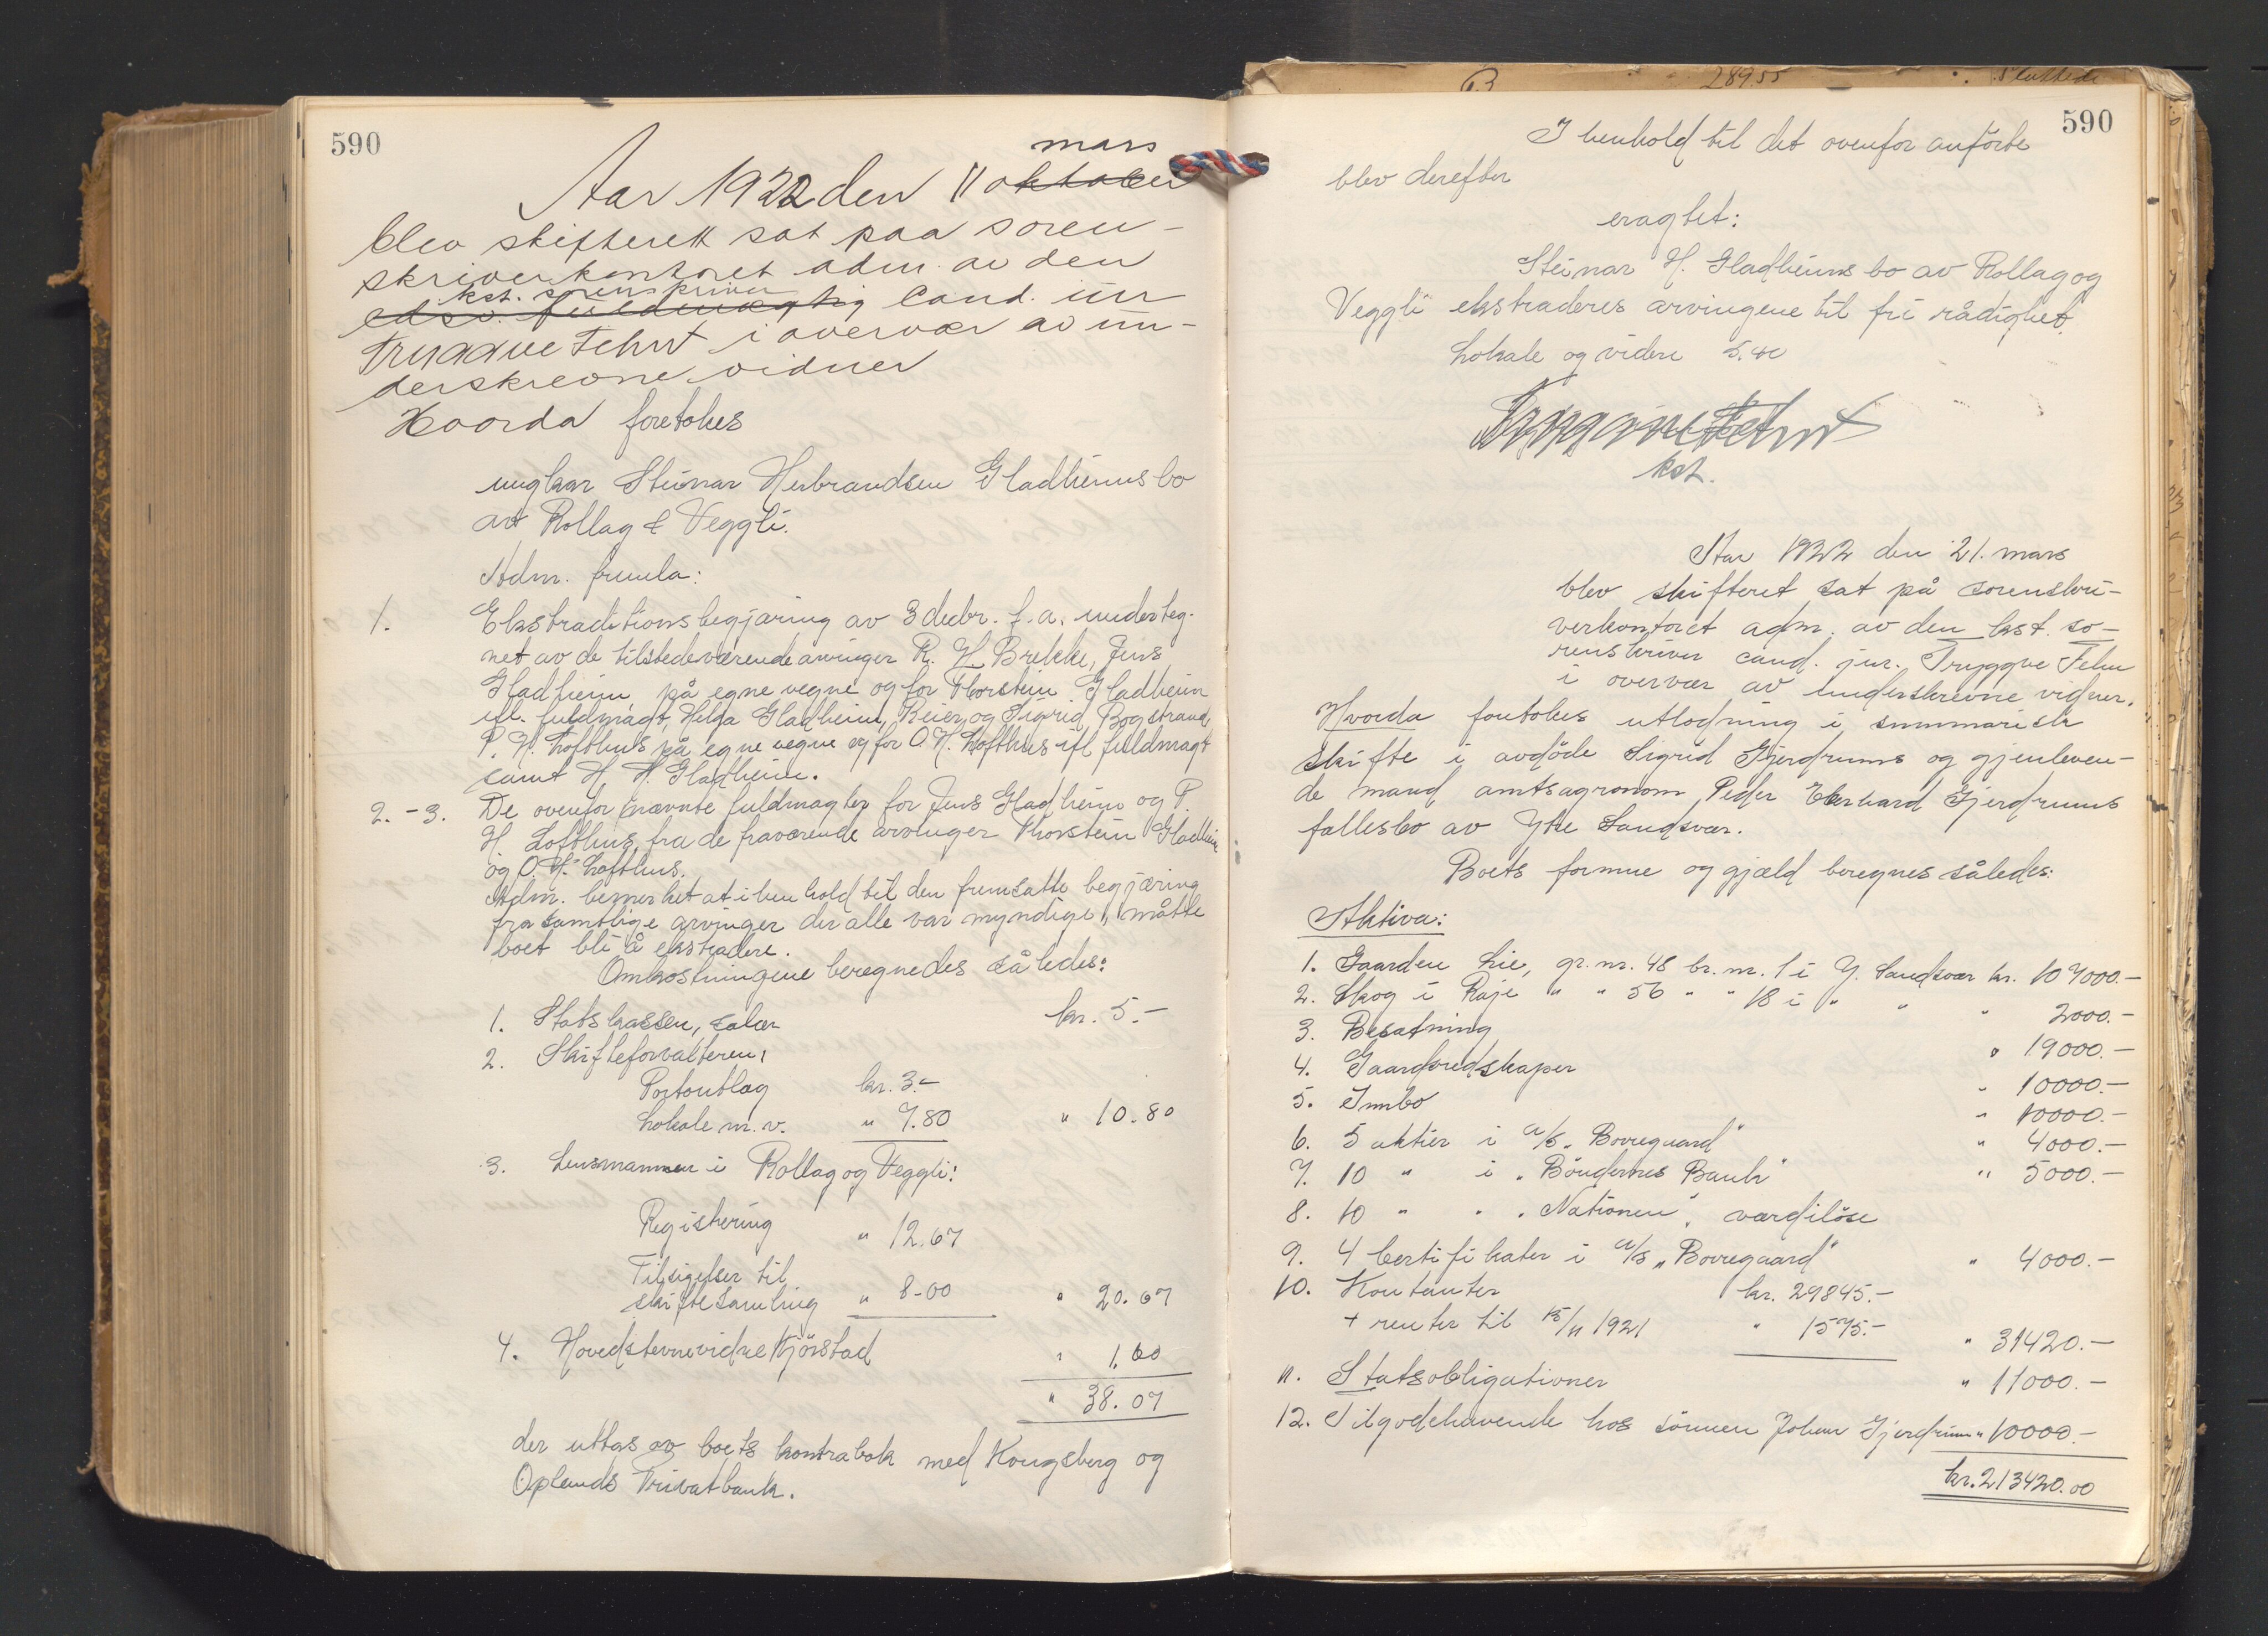 590
Aar 1922 den 11 oktober mars
blev skifterett sat paa soren-
skriverkontoret adm. av den
edsv. fuldmægtig kst. sorenskriver cand. jur
Tryggve Fehn i overvær av un-
derskrevne vidner
Hvorda foretokes
ungkar Steinar Herbrandsen Gladheims bo
av Rollag & Veggli.
Adm. fremla:
1. Ekstraditionsbegjæring av 3 decbr. f.a. underteg-
net av de tilstedeværende arvinger R. H. Brekke, Jens
Gladheim på egne vegne og for Thorstein Gladheim
ifl. fuldmagt, Helga Gladheim, Reier og Sigrid Bogstrand,
P. H. Lofthus på egne vegne og for O. H. Lofthus ifl. fuldmagt
samt H. H. Gladheim.
2.-3. De ovenfor nævnte fuldmagter for Jens Gladheim og P.
H. Lofthus fra de fraværende arvinger Thorstein Gladheim
og O. H. Lofthus.
Adm. bemerket at i henhold til den fremsatte begjæring
fra samtlige arvinger der alle var myndige, måtte
boet bli å ekstradere.
Omkostningene beregnedes således:
1. Statskassen, salær kr. 5.-
2. Skifteforvalteren:
Portoutlæg kr. 3.-
Lokale m.v. " 7.80 " 10.80
3. Lensmannen i Rollag og Veggli:
Registrering " 12.67
Tilsigelser til
skiftesamling " 8-00 " 20.67
4. Hovedstevnevidne Kjörstad " 1.60
" 38.07
der uttas av boets kontrabok med Kongsberg og
Oplands Privatbank.
28955
590
I henhold til det ovenfor anförte
blev derefter
eragtet:
Steinar H. Gladheims bo av Rollag og
Veggli ekstraderes arvingene til fri rådighet.
Lokale og videre 5.40
Tryggve Fehn
kst.
Aar 1922 den 21. mars
blev skifteret sat på sorenskri-
verkontoret adm. av den kst. so-
renskriver cand. jur. Tryggve Fehn
i overvær av underskrevne vidner.
Hvorda foretokes utlodning i summarisk
skifte i avdöde Sigrid Gjerdrums og gjenleven-
de mand amtsagronom Peder Eberhard Gjerdrums
fællesbo av Ytre Sandsvær.
Boets formue og gjæld beregnes således:
Aktiva:
1. Gaarden Lie, gr.nr. 48 br.nr. 1 i Y. Sandsvær kr. 107000.-
2. Skog i Raje " " 56 " " 18 i " " " 2000.-
3. Besætning " 19000.-
4. Gaardsredskaper " 10000.-
5. Innbo " 10000.-
6. 5 aktier i A/S "Borregaard" " 4000.-
7. 10 " i "Böndernes Bank" " 5000.-
8. 10 " " "Nationen", værdilöse
9. 4 Certifikater i A/S "Borregaard" " 4000.-
10. Kontanter kr. 29845.-
+ renter til 15/11 1921 " 1575.- " 31420.-
11. Statsobligationer " 11000.-
12. Tilgodehavende hos sönnen Johan Gjerdrum " 10000.-
kr. 213420.00